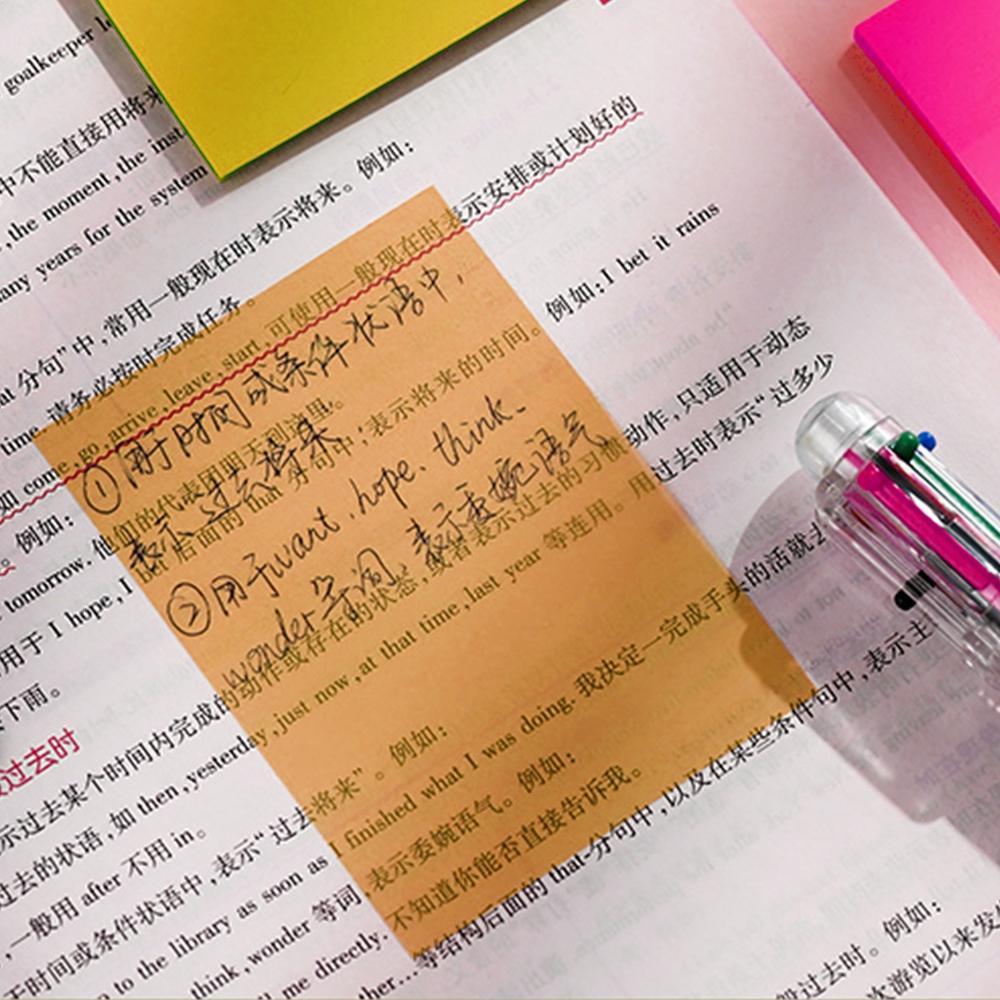 goalkeeper
中不能直接用将来
,the moment,the inst
any years for the system
at 分句”中,常用一般现在时表示将来。例如:
time. 请务必按时完成任务。
如 come,go,arrive,leave,start,可使用一般现在时表示安排或计划好的
。例如:
tomorrow. 他们的代表团明天到这里。
用于 I hope,I bet 后面的 that 分句中,表示将来的时间。例如:I bet it rains
下雨。
过去时
示过去某个时间内完成的动作或存在的状态,或者表示过去的习惯动作,只适用于动态
过去的状语,如 then,yesterday,just now,at that time,last year 等连用。用过去时表示“过多少
,一般用 after 不用 in。
于时间或条件状语中,表示“过去将来”。例如:
to the library as soon as I finished what I was doing. 我决定一完成手头的活就去
think,wonder 等词,表示委婉语气。例如:
me directly. 不知道你能否直接告诉我。
ther…等结构后面的 that-分句中,以及在某些条件句中,表示主
般过去时。例如:
次游览以来发
①用于时间或条件状语中,
表示过去将来;
②用于want、hope、think、
wonder等词。表示委婉语气